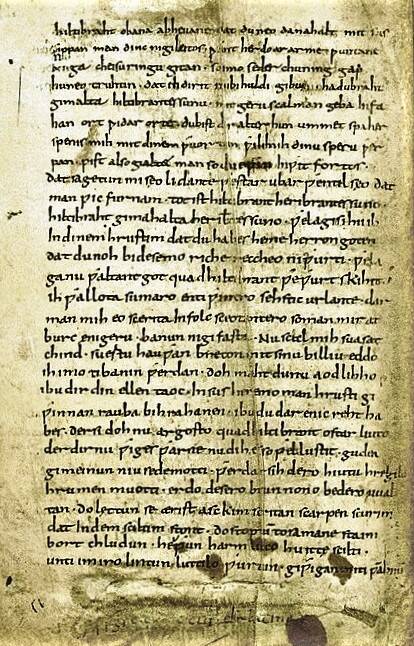 hiltibraht obana ab heuane dat du neo dana halt mit sus
sippan man dinc ni gileitos · ƿant her do ar arme ƿuntane
bouga cheisuringu gitan · so imo se der chuning gap
huneo truhtin · dat ih dir it nu bi huldi gibu · hadubraht
gimalta hiltibrantes sunu · mit geru scal man geba infa
han ort ƿidar orte · du bist dir alter hun ummet spaher
spenis mih mit dinem ƿortun ƿili mih dinu speru ƿer
pan · pist also gialtet man so du eƿin inƿit fortos ·
dat sagetun mi seo lidante ƿestar ubar ƿentilseo dat
man ƿic furnam · tot ist hiltibrant heribrantes suno ·
hiltibraht gimahalta heribtes suno · ƿela gisihu ih
in dinem hrustim dat du habes heme herron goten
dat du noh bi desemo riche reccheo ni ƿurti · ƿela
ga nu ƿaltant got quad hiltibrant ƿeƿurt skihit
ih ƿallota sumaro enti ƿintro sehstic ur lante · dar
man mih eo scerita in folc sceotantero so man mir at
burc enigeru · banun ni gifasta · nu scal mih suasat
chind · suertu hauƿan breton mit sinu billiu eddo
ih imo ti banin ƿerdan · doh maht du nu aodlihho
ibu dir din ellen taoc · in sus heremo man hrusti gi
ƿinnan rauba bihrahanen · ibu du dar enic reht ha
bes · der si doh nu argosto quad hiltibrant ostarliuto
der dir nu ƿiges ƿarne nu dih es so ƿel lustit · gudea
gimeinun niuse de motti · ƿerdar sih dero hiutu hregilo
hrumen muotti · erdo desero brunnono bedero uual
tan · do lettun se ærist asckim scritan scarpen scurim
dat in dem sciltim stont · do stoptun to samane staim
bort chludun · heƿun harmlicco huitte scilti ·
unti imo iro lintun luttilo ƿurtun · giƿigan miti ƿabnum